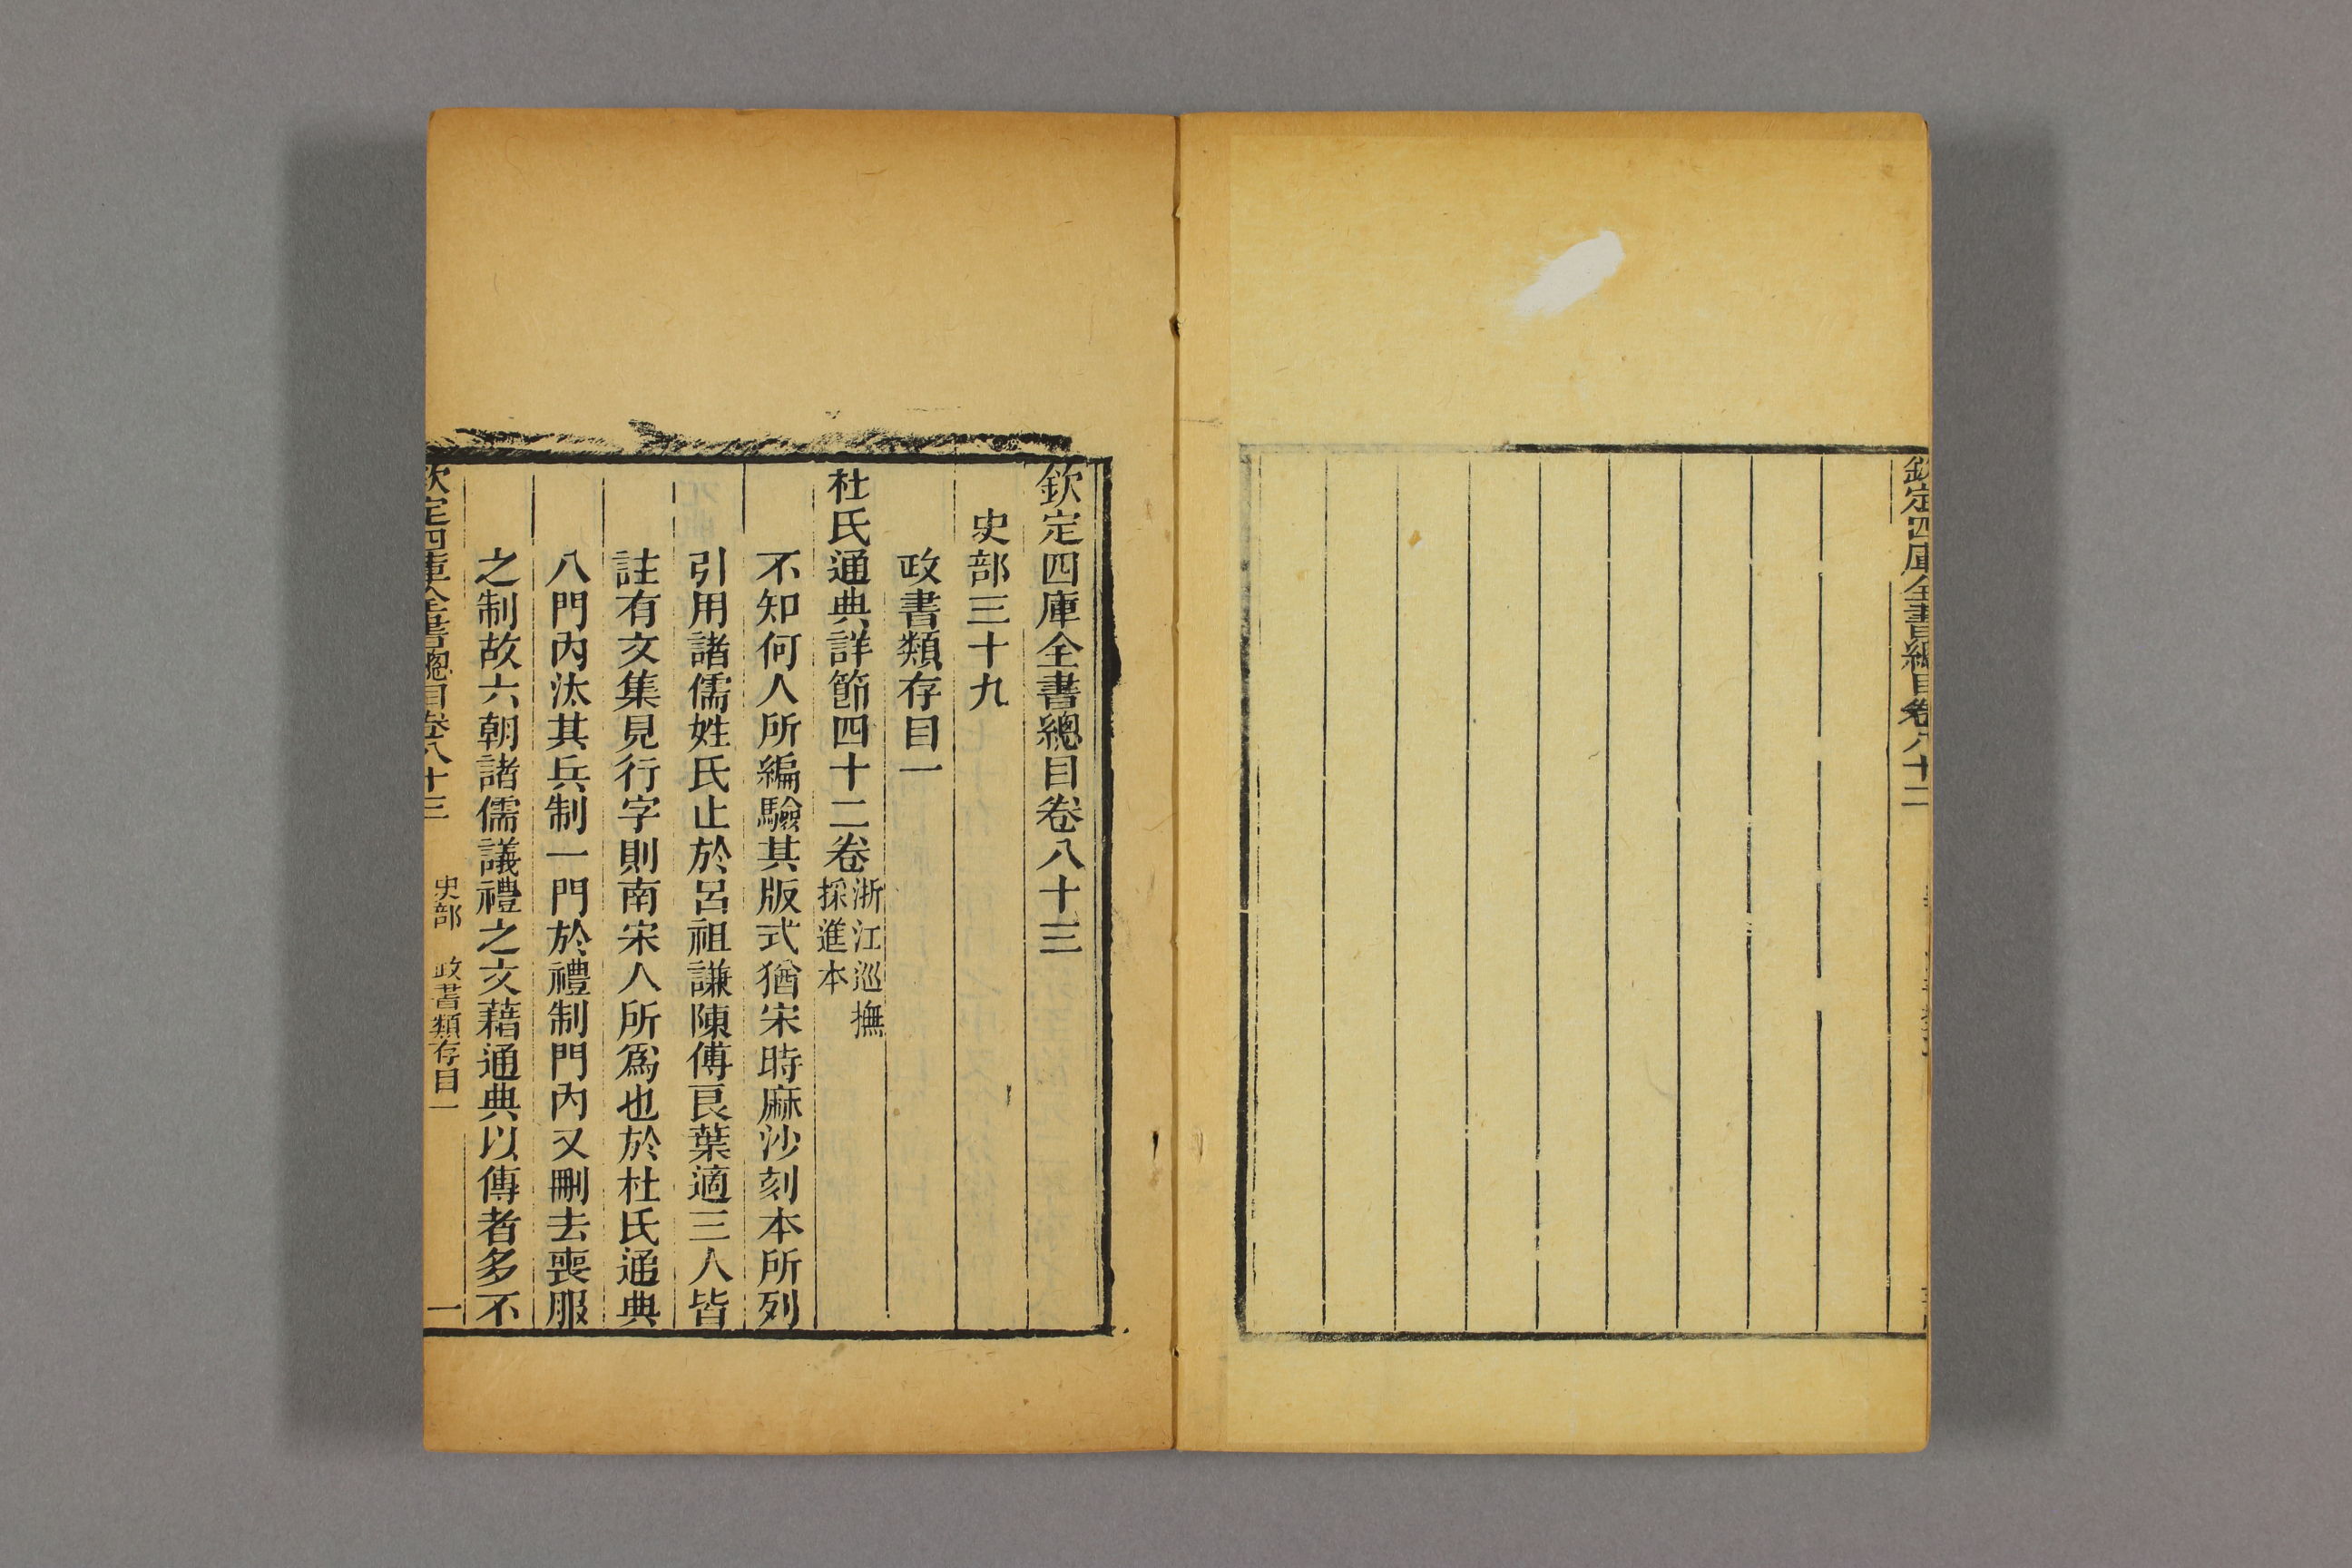 欽定四庫全書總目卷八十二
欽定四庫全書總目卷八十三
史部三十九
政書類存目一
杜氏通典詳節四十二卷
浙江巡撫
採進本
不知何人所編驗其版式猶宋時麻沙刻本所列
引用諸儒姓氏止於呂祖謙陳傅良葉適三人皆
註有文集見行字則南宋人所爲也於杜氏通典
八門內汰其兵制一門於禮制門內又刪去喪服
之制故六朝諸儒議禮之文藉通典以傳者多不
欽定四庫全書總目卷八十三
史部
政書類存目一
一